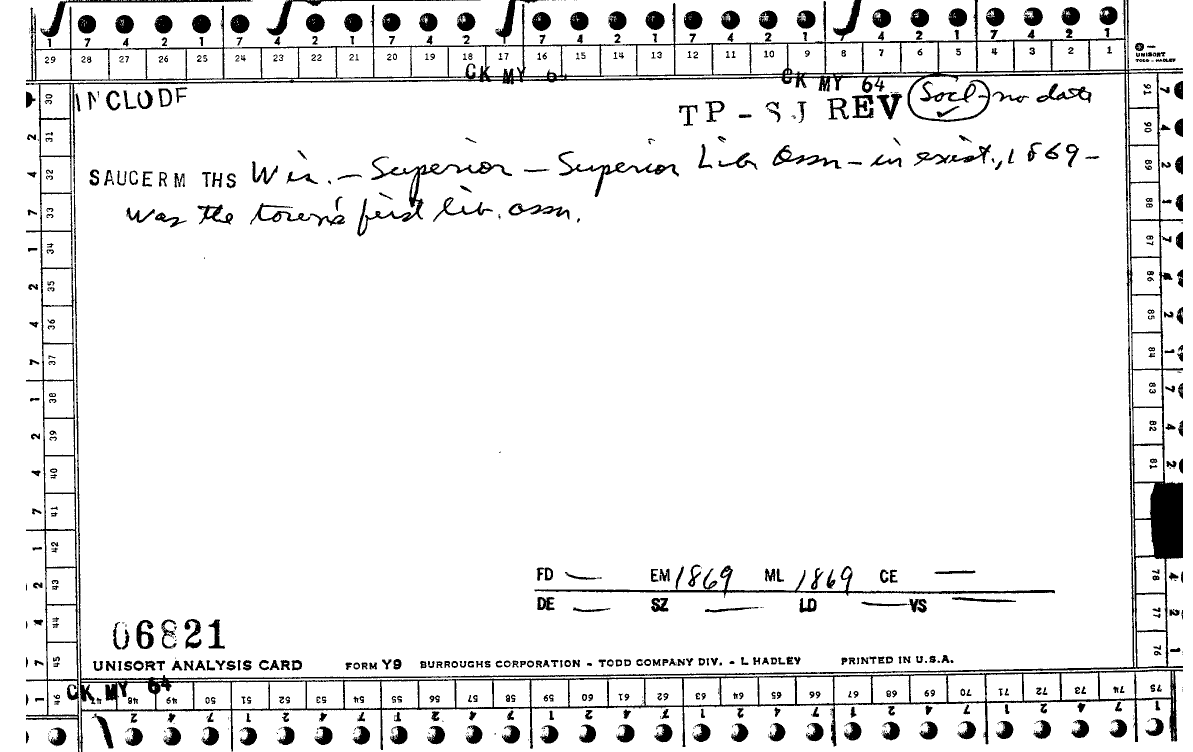 1 7 4 2 1 7 4 2 1 7 4 2 1 7 4 2 1 7 4 2 1 7 4 2 1
29 28 27 26 25 24 23 22 21 20 19 18 17 16 15 14 13 12 11 10 9 8 7 6 5 4 3 2 1
UNISORT
TODD - HADLEY
CK MY 64 CK MY 64
INCLUDE TP - SJ REV Socl - no date
SAUCERM THS Wis. - Superior - Superior Lib Assn - in exist., 1869 -
was the town's first lib. assn.
30 31 32 33 34 35 36 37 38 39 40 41 42 43 44 45 46
2 4 7 1 2 4 7 1 2 4 7 1 2 4 7 1
91 90 89 88 87 86 85 84 83 82 81 78 77 76
FD — EM 1869 ML 1869 CE —
DE — SZ — LD — VS —
06821
UNISORT ANALYSIS CARD FORM Y9 BURROUGHS CORPORATION - TODD COMPANY DIV. - L HADLEY PRINTED IN U.S.A.
CK MY 64
47 48 49 50 51 52 53 54 55 56 57 58 59 60 61 62 63 64 65 66 67 68 69 70 71 72 73 74 75